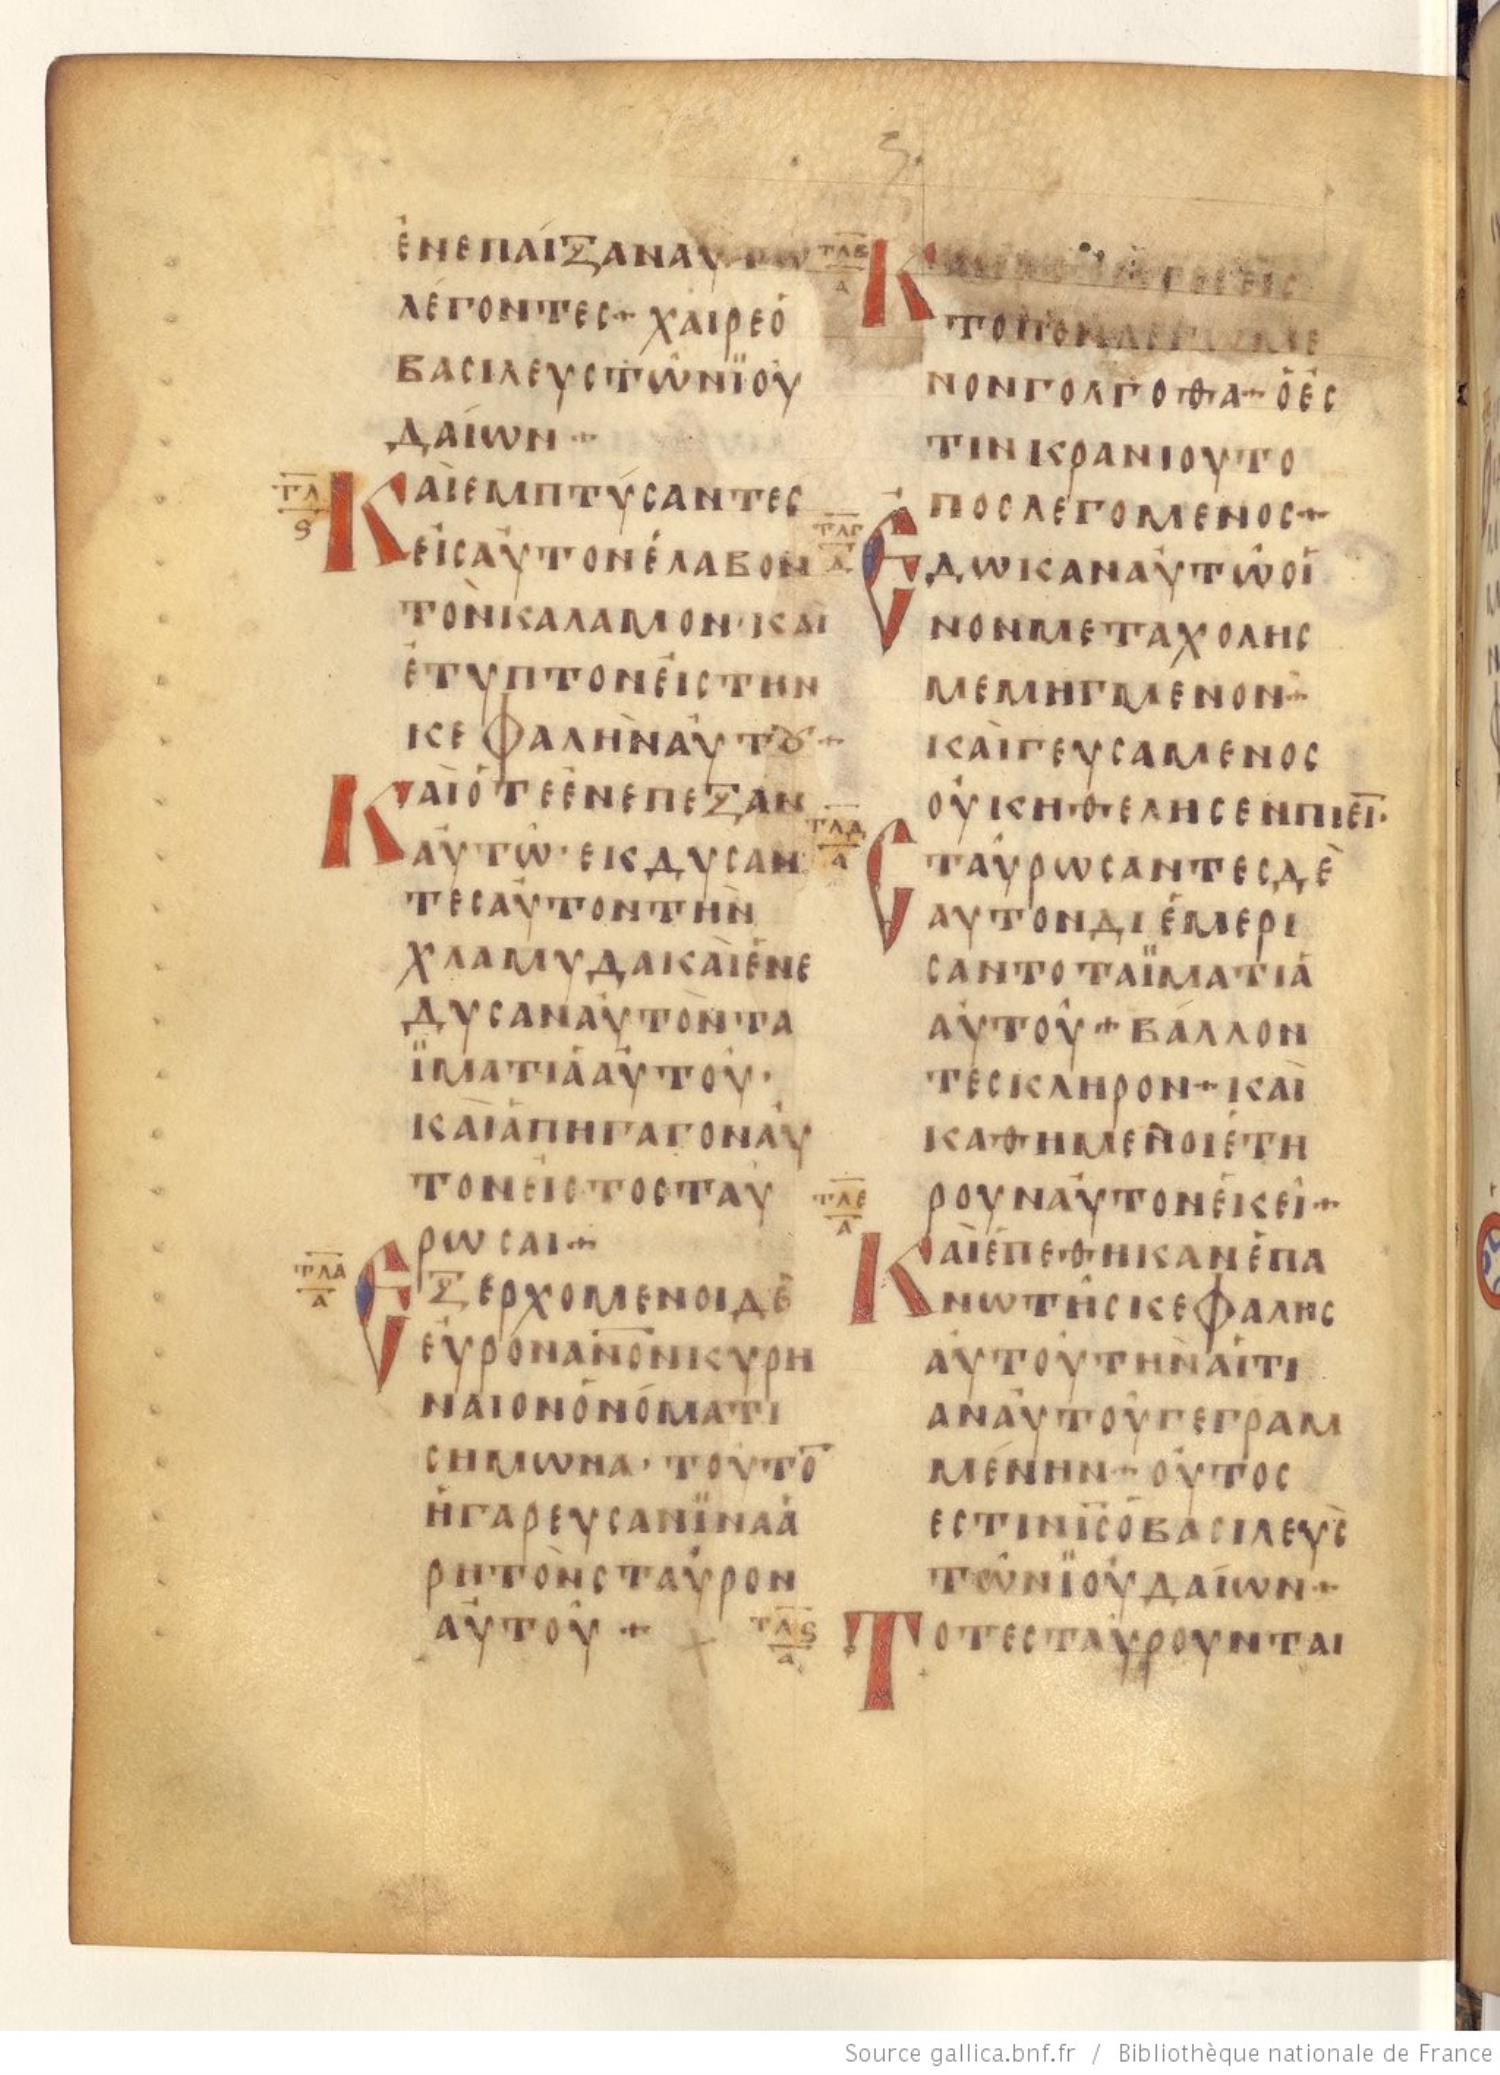 ς
ἐνεπαίξαναυτω
λέγοντες+ χαιρεὁ
βασιλευςτῶνϊου
δαίων+
τλ
ς
Καὶεμπτύσαντες
εἰςαὐτονἔλαβον
τὸνκαλαμον·και
ἐτυπτονεἰςτην
κεφαλὴναὐτȣ+
Καὶὁτεἐνεπεξαν
αὐτῶ·εκδυσαν
τεςαὐτοντὴν
χλαμυδακαὶἐνε
δυσαναὐτὸντα
ϊματιάαὐτου·
καὶἀπηγαγοναὐ
τονεἰςτοσταυ
ρωσαι+
τλα
α
Εξερχομενοιδὲ
εὑροναν̅ο̅νκυρη
ναιονὀνόματι
σημωνα·τουτο̅
ἠγαρευσανϊναἀ
ρητὸνσταυρον
αὐτοῦ+
τλβ
α
Κ
τοπονλεγομε
νονγολγοθα+ὅἐς
τινκρανιουτο
ποςλεγομενος+
τλγ
δ
Εδωκαναὐτῶοἰ
νονμεταχολης
μεμηγμενον+
καὶγευσαμενος
οὐκηθελησενπιεῖ̅·
τλδ
α
Σταυρωσαντεςδὲ
αυτονδιἐμερι
σαντοταϊματιά
αὐτοῦ+βάλλον
τέςκληρον+καὶ
καθημενοιἐτη
ρουναὐτονἐκεῖ+
τλε
α
Καὶἐπεθηκανἐπα
νωτῆςκεφαλης
αὐτοῦτὴναἰτι
αναὐτοῦγεγραμ
μένην+οὑτος
εστινι̅ς̅ὁβασιλευς
τῶνϊουδαίων+
τλς
α
Τοτεσταυρουνται
Source gallica.bnf.fr / Bibliothèque nationale de France